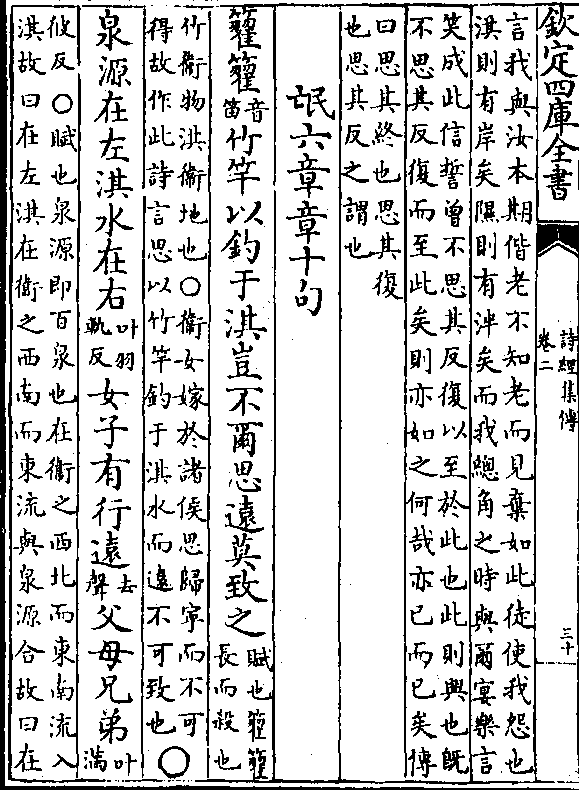 欽定四庫全書
詩經集傳
卷二
三十
言我與汝本期偕老不知老而見棄如此徒使我怨也
淇則有岸矣隰則有泮矣而我總角之時與爾宴樂言
笑成此信誓曾不思其反復以至於此也此則興也既
不思其反復而至此矣則亦如之何哉亦已而已矣傳
曰思其終也思其復
也思其反之謂也
氓六章章十句
籊籊音笛竹竿以釣于淇豈不爾思遠莫致之賦也籊籊長而殺也
竹衛物淇衛地也○衛女嫁於諸侯思歸寧而不可
得故作此詩言思以竹竿釣于淇水而遠不可致也○
泉源在左淇水在右叶羽軌反女子有行遠去聲父母兄弟叶滿
彼反○賦也泉源即百泉也在衛之西北而東南流入
淇故曰在左淇在衛之西南而東流與泉源合故曰在